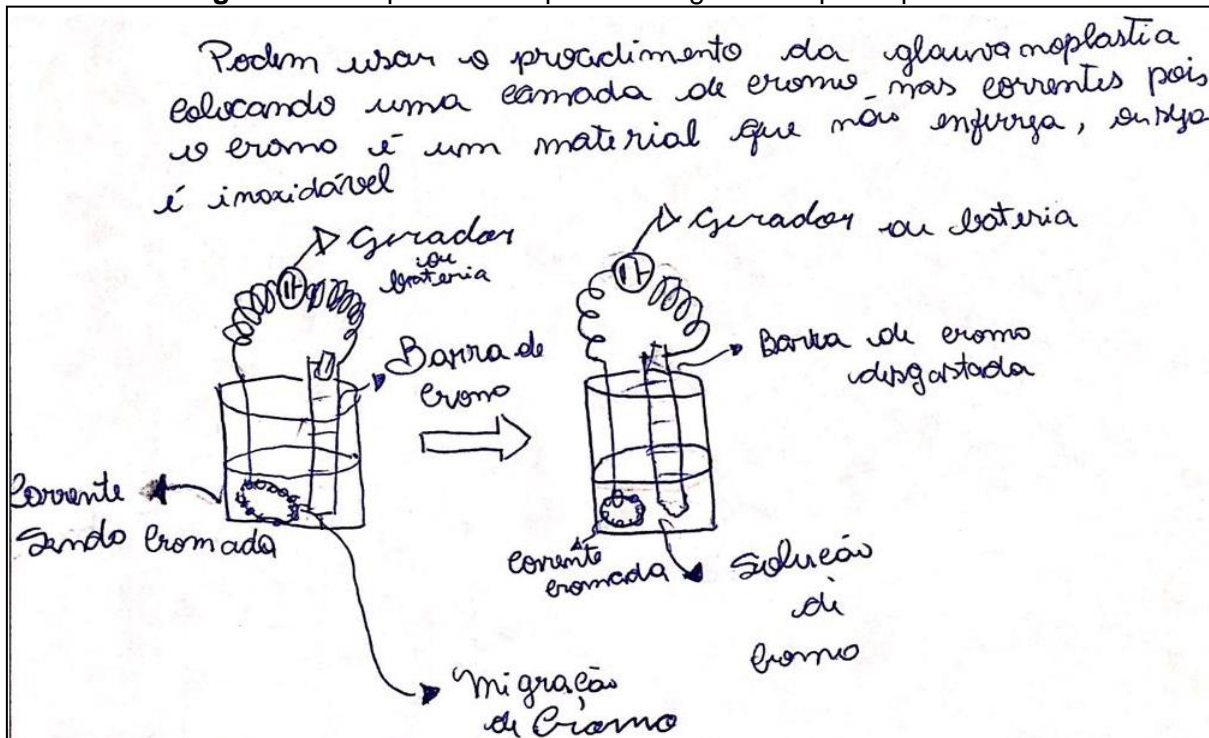 Podem usar o procedimento da glauvanoplastia
colocando uma camada de cromo nas correntes pois
o cromo é um material que não enferrja, ou seja
é inoxidável
Gerador
ou
bateria
Barra de
Cromo
Corrente
Sendo Cromada
Migração
de Cromo
Gerador ou bateria
Barra de cromo
desgastada
corrente
cromada
Solução
de
Cromo